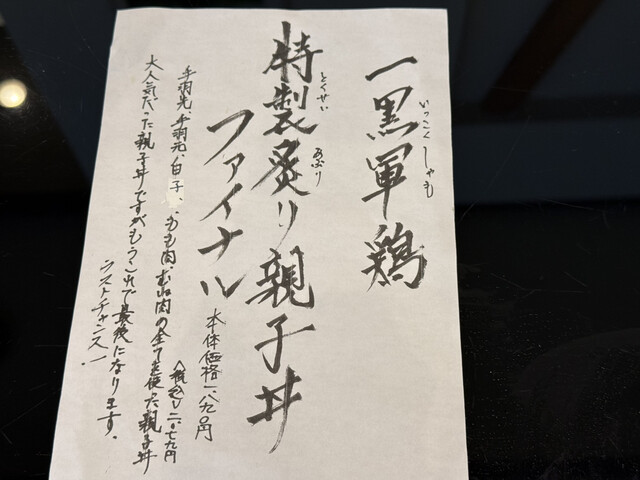 一黒軍鶏
いっこくしゃも
特製炙り親子丼
とくせい
あぶり
ファイナル
本体価格一、八九〇円
(税込)二〇七九円
手羽先、手羽元、白子、もも肉、むね肉の全てを使った親子丼
大人気だった親子丼ですがもうこれで最後になります。
ラストチャンス!